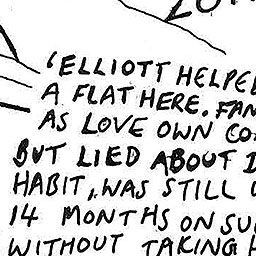 'ELLIOTT HELPED
A FLAT HERE. FAN
AS LOVE OWN CO
BUT LIED ABOUT
HABIT, WAS STILL
14 MONTHS ON SU
WITHOUT TAKING